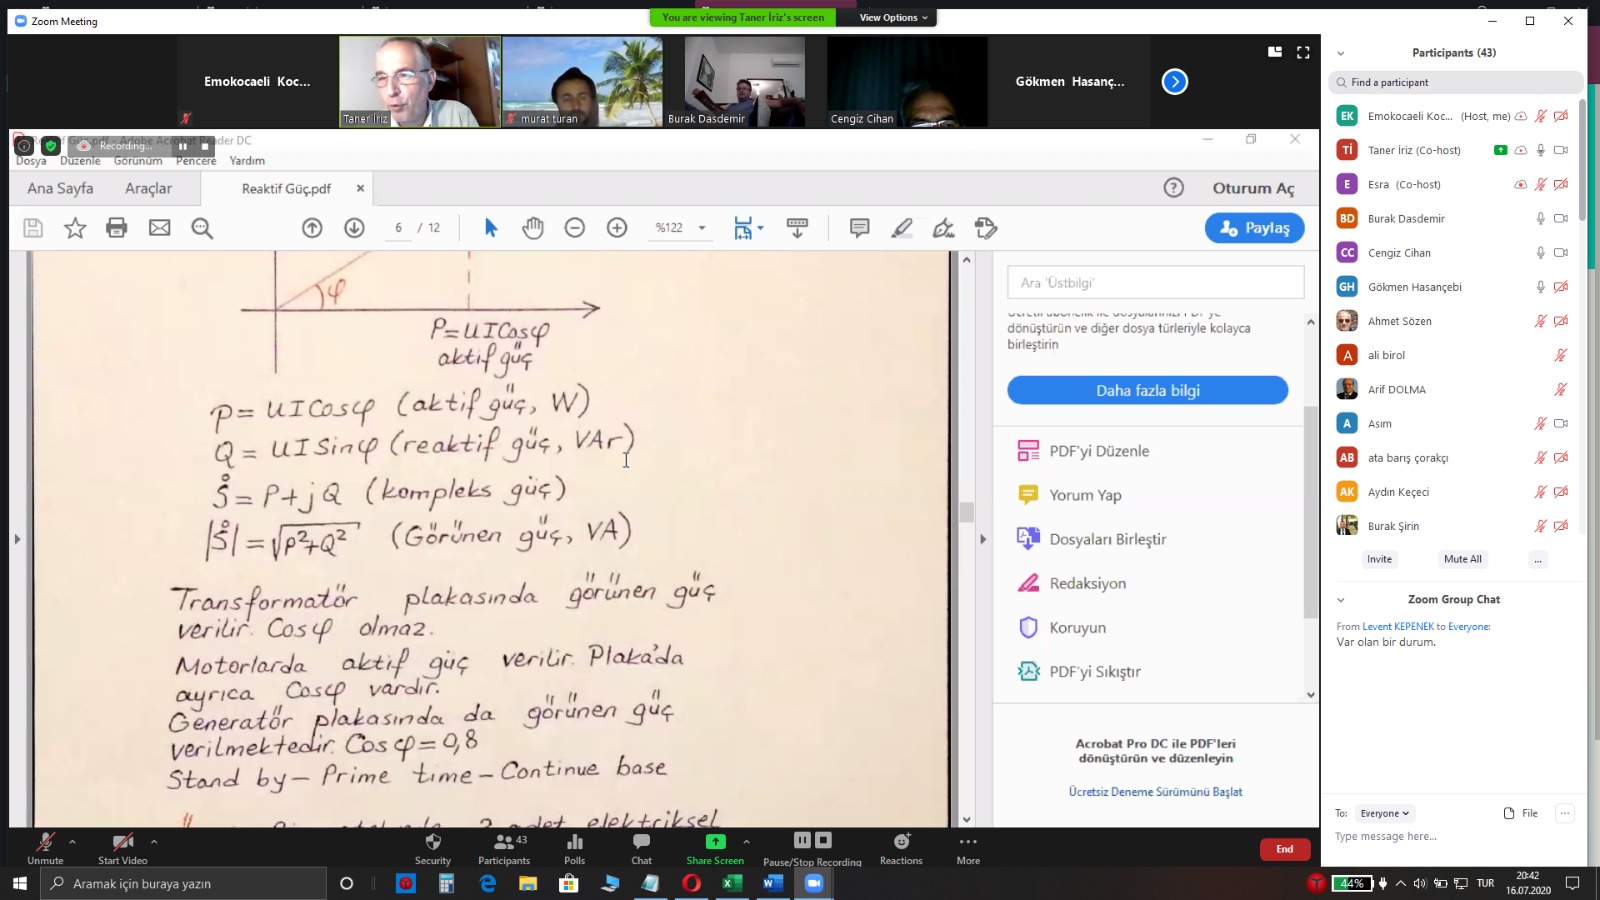 Zoom Meeting
You are viewing Taner İriz's screen
View Options
Emokocaeli Koc...
Taner İriz
murat turan
Burak Dasdemir
Cengiz Cihan
Gökmen Hasanç...
Recording...
Dosya Düzenle Görünüm Pencere Yardım
Ana Sayfa Araçlar Reaktif Güç.pdf × Oturum Aç
6 / 12 %122 Paylaş
φ
P=UICosφ
aktif güç
P= UICosφ (aktif güç, W)
Q = UISinφ (reaktif güç, VAr)
S̊= P+jQ (kompleks güç)
|S̊|=√P²+Q² (Görünen güç, VA)
Transformatör plakasında görünen güç
verilir. Cosφ olmaz.
Motorlarda aktif güç verilir. Plaka'da
ayrıca Cosφ vardır.
Generatör plakasında da görünen güç
verilmektedir. Cosφ=0,8
Stand by – Prime time – Continue base
Ara 'Üstbilgi'
dönüştürün ve diğer dosya türleriyle kolayca
birleştirin
Daha fazla bilgi
PDF'yi Düzenle
Yorum Yap
Dosyaları Birleştir
Redaksiyon
Koruyun
PDF'yi Sıkıştır
Acrobat Pro DC ile PDF'leri
dönüştürün ve düzenleyin
Ücretsiz Deneme Sürümünü Başlat
Participants (43)
Find a participant
EK Emokocaeli Koc... (Host, me)
Tİ Taner İriz (Co-host)
E Esra (Co-host)
BD Burak Dasdemir
CC Cengiz Cihan
GH Gökmen Hasançebi
Ahmet Sözen
A ali birol
Arif DOLMA
A Asım
AB ata barış çorakçı
AK Aydın Keçeci
Burak Şirin
Invite Mute All ...
Zoom Group Chat
From Levent KEPENEK to Everyone:
Var olan bir durum.
To: Everyone File
Type message here...
Unmute Start Video Security Participants 43 Polls Chat Share Screen Pause/Stop Recording Reactions More End
Aramak için buraya yazın
44% TUR
20:42
16.07.2020